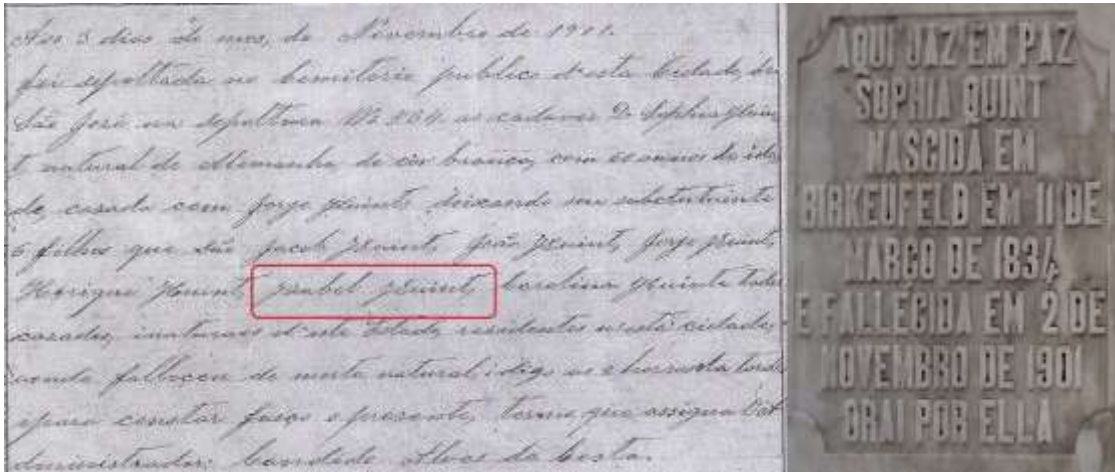 Aos 3 dias do mes, de Novembro de 1901.
foi sepultada no Cemiterio publico d'esta Cidade, de
São José na sepultura Nº 264 as cadaver D. Sophia Quin
t natural de Alemanha de côr branca, com 60 annos de ida
de, casada com Jorge Quint, deixando
6 filhos que são Jacob Quint, João Quint, Jorge Quint,
Henrique Quint, Izabel Quint, Carolina Quint todos
casados, naturaes d'este Estado, residentes nesta cidade,
falleceu de morte natural, digo as horas da tarde
e para constar faço o presente, termo que assigna Eu
Administrador: Candido Alves da Costa.
AQUI JAZ EM PAZ
SOPHIA QUINT
NASCIDA EM
BIRKEUFELD EM 11 DE
MARÇO DE 1834
E FALLECIDA EM 2 DE
NOVEMBRO DE 1901
ORAI POR ELLA